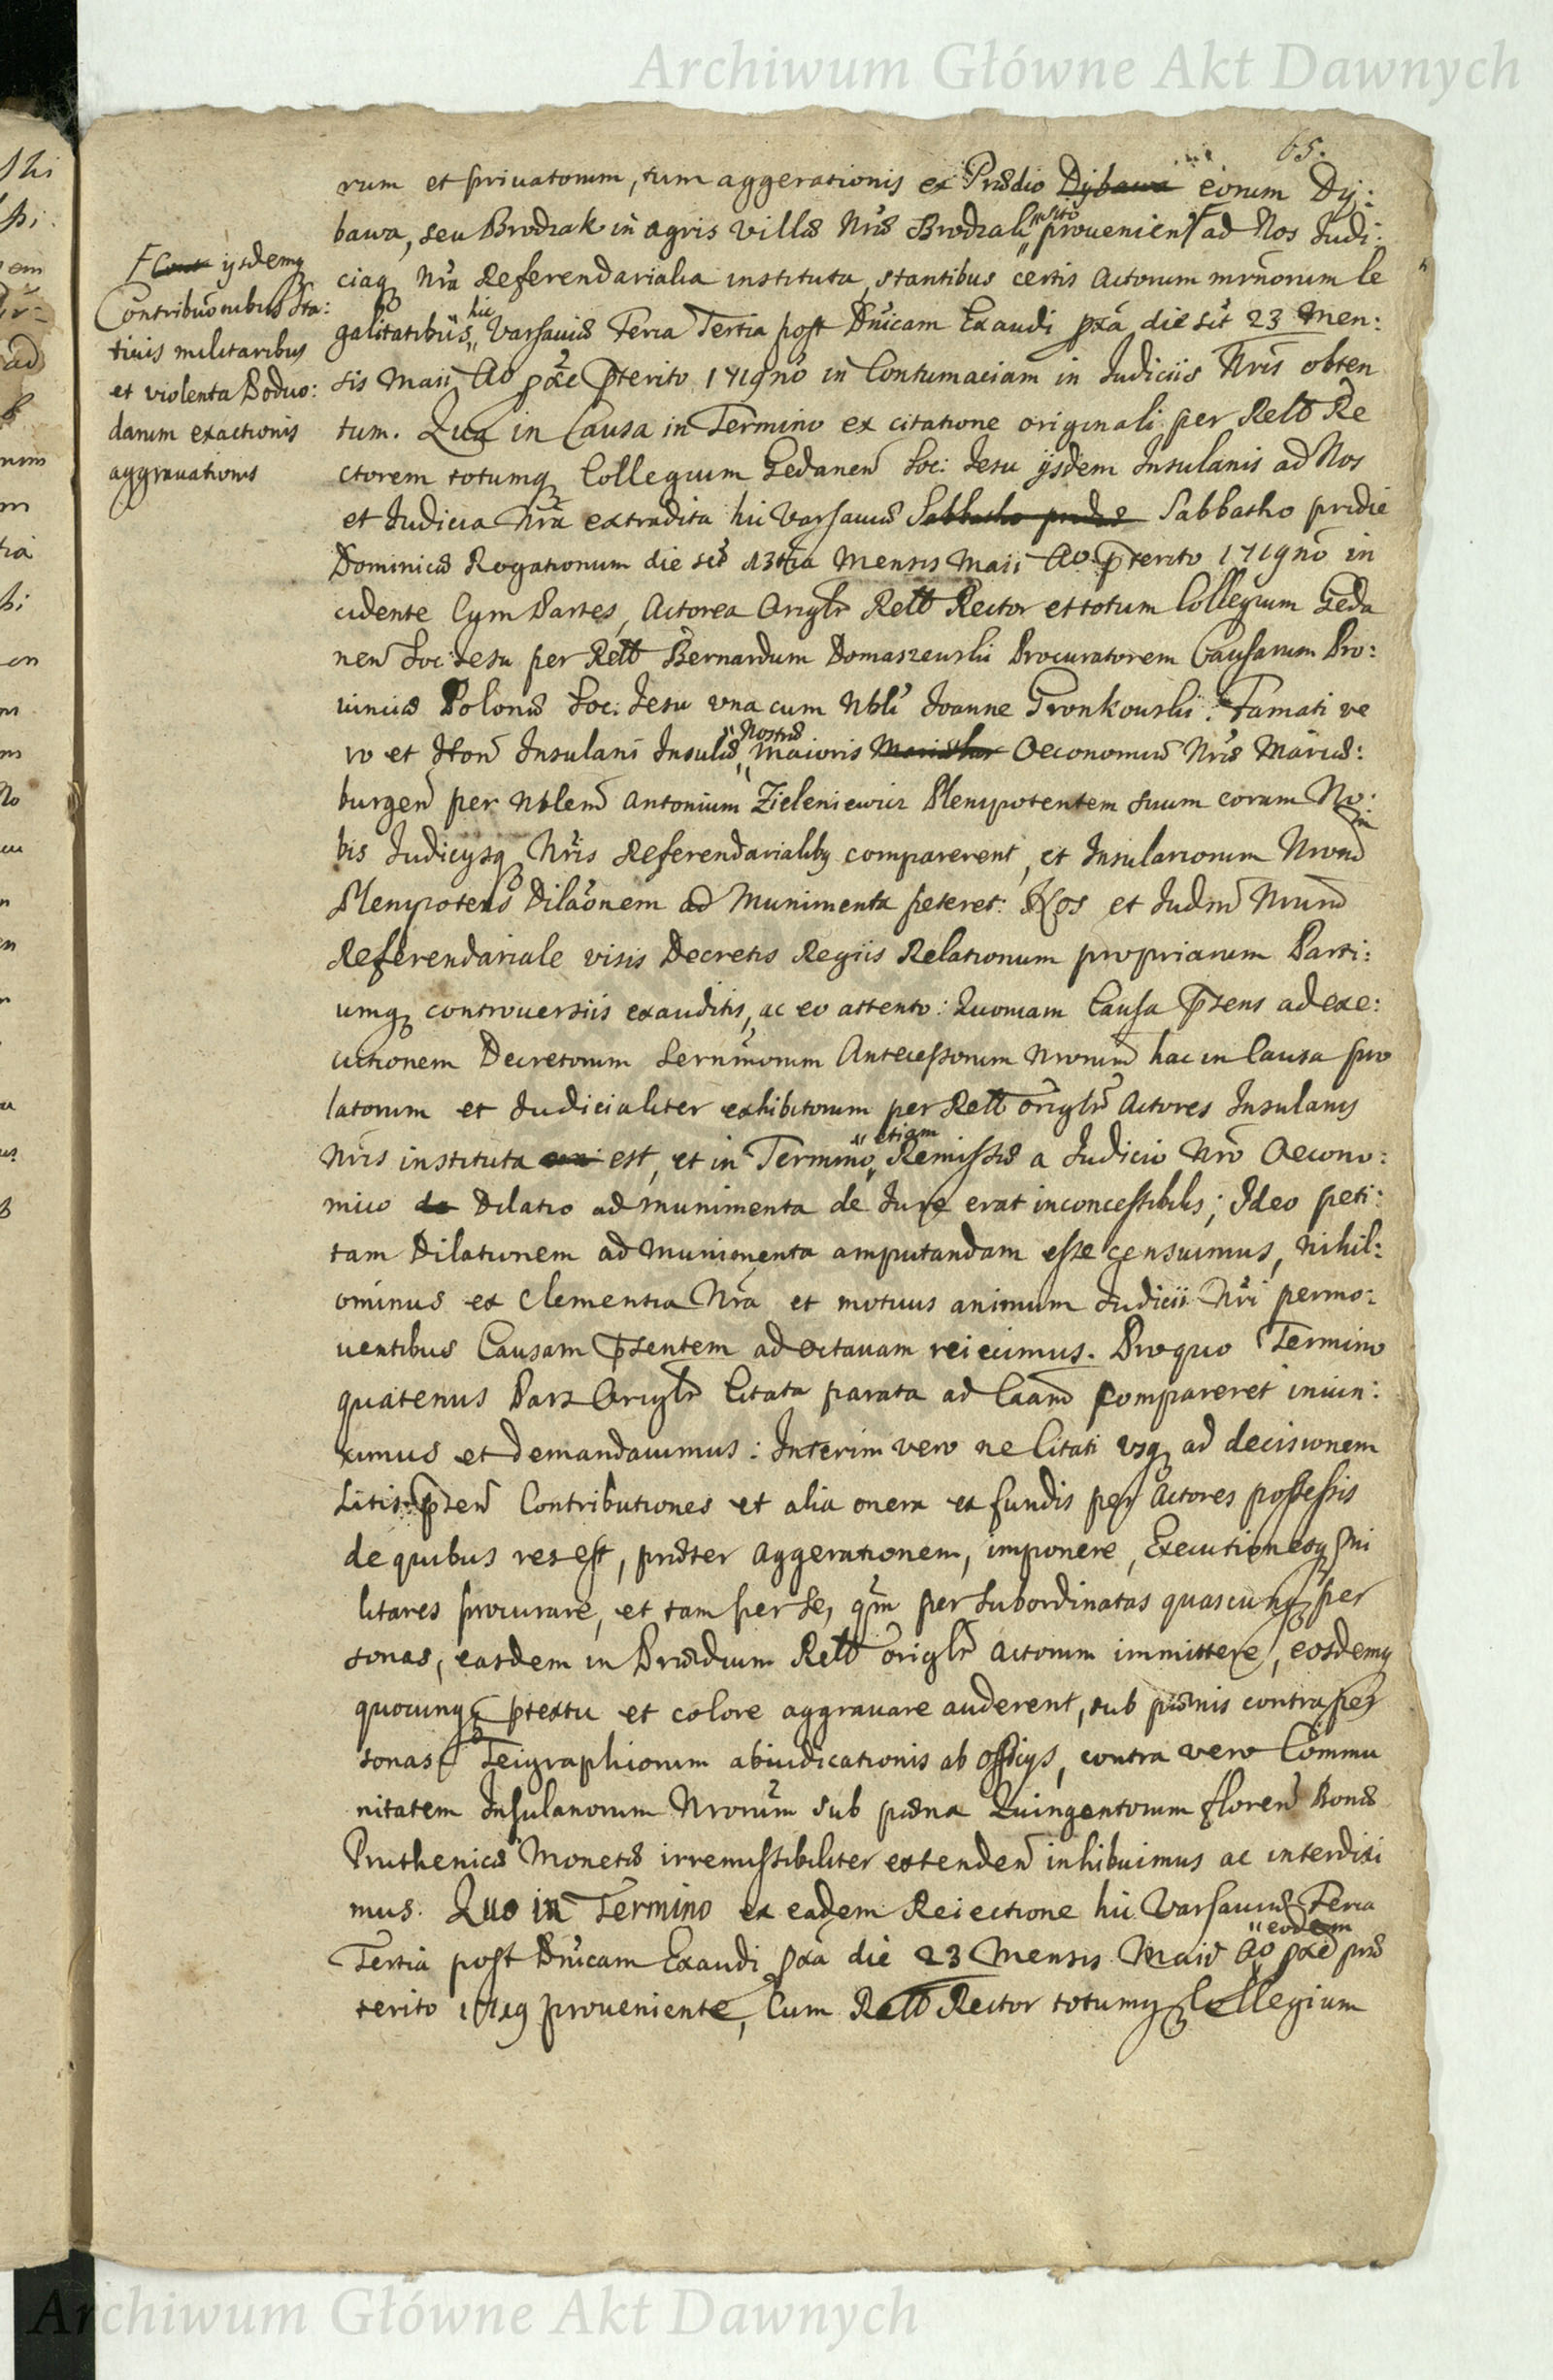 Archiwum Główne Akt Dawnych
65.
rum et privatorum, tum aggerationis ex Prædio Dybawa eorum Dy:
bawa, seu Brodzak in agris villæ Nræ Brodzak sito provenien ad Nos Judi:
ciaq Nra Referendarialia instituta, stantibus certis Actorum mrnorum le
galitatibus, hic Varsaviæ Feria Tertia post Dnicam Exaudi pxa die scit 23 Men:
sis Maii Ao pxe pterito 1719no in Contumaciam in Judiciis Nris obten
tum. Qua in Causa in Termino ex citatione originali per Rell Re
ctorem totumq Collegium Gedanen Soc: Jesu ijsdem Insulanis ad Nos
et Judicia Nra extradita hic Varsaviæ Sabbatho pridie Sabbatho pridie
Dominicæ Rogationum die sct 13tia Mensis Maii Ao pterito 1719no in
cidente Cum Partes, Actorea Origlr Rell Rector et totum Collegium Geda
nen Soc: Jesu per Rell Bernardum Domaszewski Procuratorem Causarum Pro:
vinciæ Polonæ Soc: Jesu una cum Nbli Joanne Gronkowski. Famati ve
ro et Hon Insulani Insulæ Nostræ Maioris Oeconomiæ Nræ Mariæ:
burgen per Nblem Antonium Zieleniewicz Plenipotentem suum coram No:
bis Judicijsq Nris Referendarialibq comparerent, et Insulanorum Nrorum
Plenipotens Dilaonem ad Munimenta peteret: Nos et Judm Nrum
Referendariale visis Decretis Regiis Relationum propriarum Parti:
umq controversiis exauditis, ac eo attento: Quoniam Causa psens ad exe:
cutionem Decretorum Sernmorum Antecessorum Nrorum hac in Causa pro
latorum et Judicialiter exhibitorum per Rell origlr Actores Insulanis
Nris instituta est, et in Termino etiam Remissæ a Judicio Nro Oecono:
mico da Dilatio ad munimenta de Jure erat inconcessibilis; Ideo peti:
tam Dilationem ad Munimenta amputandam esse censuimus, nihil:
ominus ex Clementia Nra et motivis animum Judicii Nri permo:
ventibus Causam psentem ad octavam reiecimus. Pro quo Termino
quatenus Pars Origlr Citata parata ad Caam compareret iniun:
ximus et demandavimus: Interim vero ne Citati usq ad decisionem
Litis psen Contributiones et alia onera ex fundis per Actores possessis
de quibus res est, præter Aggerationem, imponere, Executionesq Mi
litares procurare, et tam per se, qm per subordinatas quascunq per
sonas, easdem in Prædium Rell origlr Actorum immittere, eosdemq
quocunq ptextu et colore aggravare auderent, sub pænis contra per
sonas Teigraphiorum abiudicationis ab officijs, contra vero Commu
nitatem Insulanorum Nrorum sub pæna Quingentorum floren Bonæ
Pruthenicæ Monetæ irremissibiliter extenden inhibuimus ac interdixi
mus. Quo in Termino ex eadem Reiectione hic Varsaviæ Feria
Tertia post Dnicam Exaudi pxa die 23 Mensis Maii Ao eodem pxe præ
terito 1719 proveniente, Cum Rell Rector totumq Collegium
ijsdemq
Contribuonibus Sta:
tivis militaribus
et violenta Podvo:
darum exactionis
aggravationis
Archiwum Główne Akt Dawnych